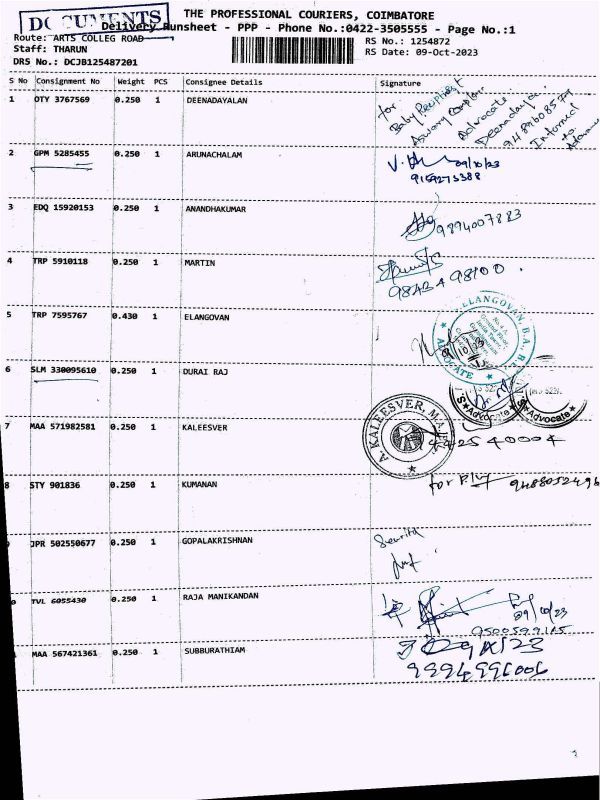 DOCUMENTS
THE PROFESSIONAL COURIERS, COIMBATORE
Delivery Runsheet - PPP - Phone No.:0422-3505555 - Page No.:1
Route: ARTS COLLEG ROAD
RS No.: 1254872
Staff: THARUN
RS Date: 09-Oct-2023
DRS No.: DCJB125487201
S No Consignment No Weight PCS Consignee Details Signature
1 OTY 3767569 0.250 1 DEENADAYALAN
for
Advocate
Deenadayalan
Informed
to
2 GPM 5285455 0.250 1 ARUNACHALAM
09/10/23
9159275388
3 EDQ 15920153 0.250 1 ANANDHAKUMAR
9894007883
4 TRP 5910118 0.250 1 MARTIN
98424 98100.
5 TRP 7595767 0.430 1 ELANGOVAN
ELANGOVAN, B.A., B.L.
ADVOCATE
6 SLM 330095610 0.250 1 DURAI RAJ
Advocate
Advocate
7 MAA 571982581 0.250 1 KALEESVER
A. KALEESVER, M.A.,
9442540004
8 STY 901836 0.250 1 KUMANAN
9488052496
JPR 502550677 0.250 1 GOPALAKRISHNAN
TVL 6055430 0.250 1 RAJA MANIKANDAN
09/10/23
9500599115
MAA 567421361 0.250 1 SUBBURATHIAM
9994996006